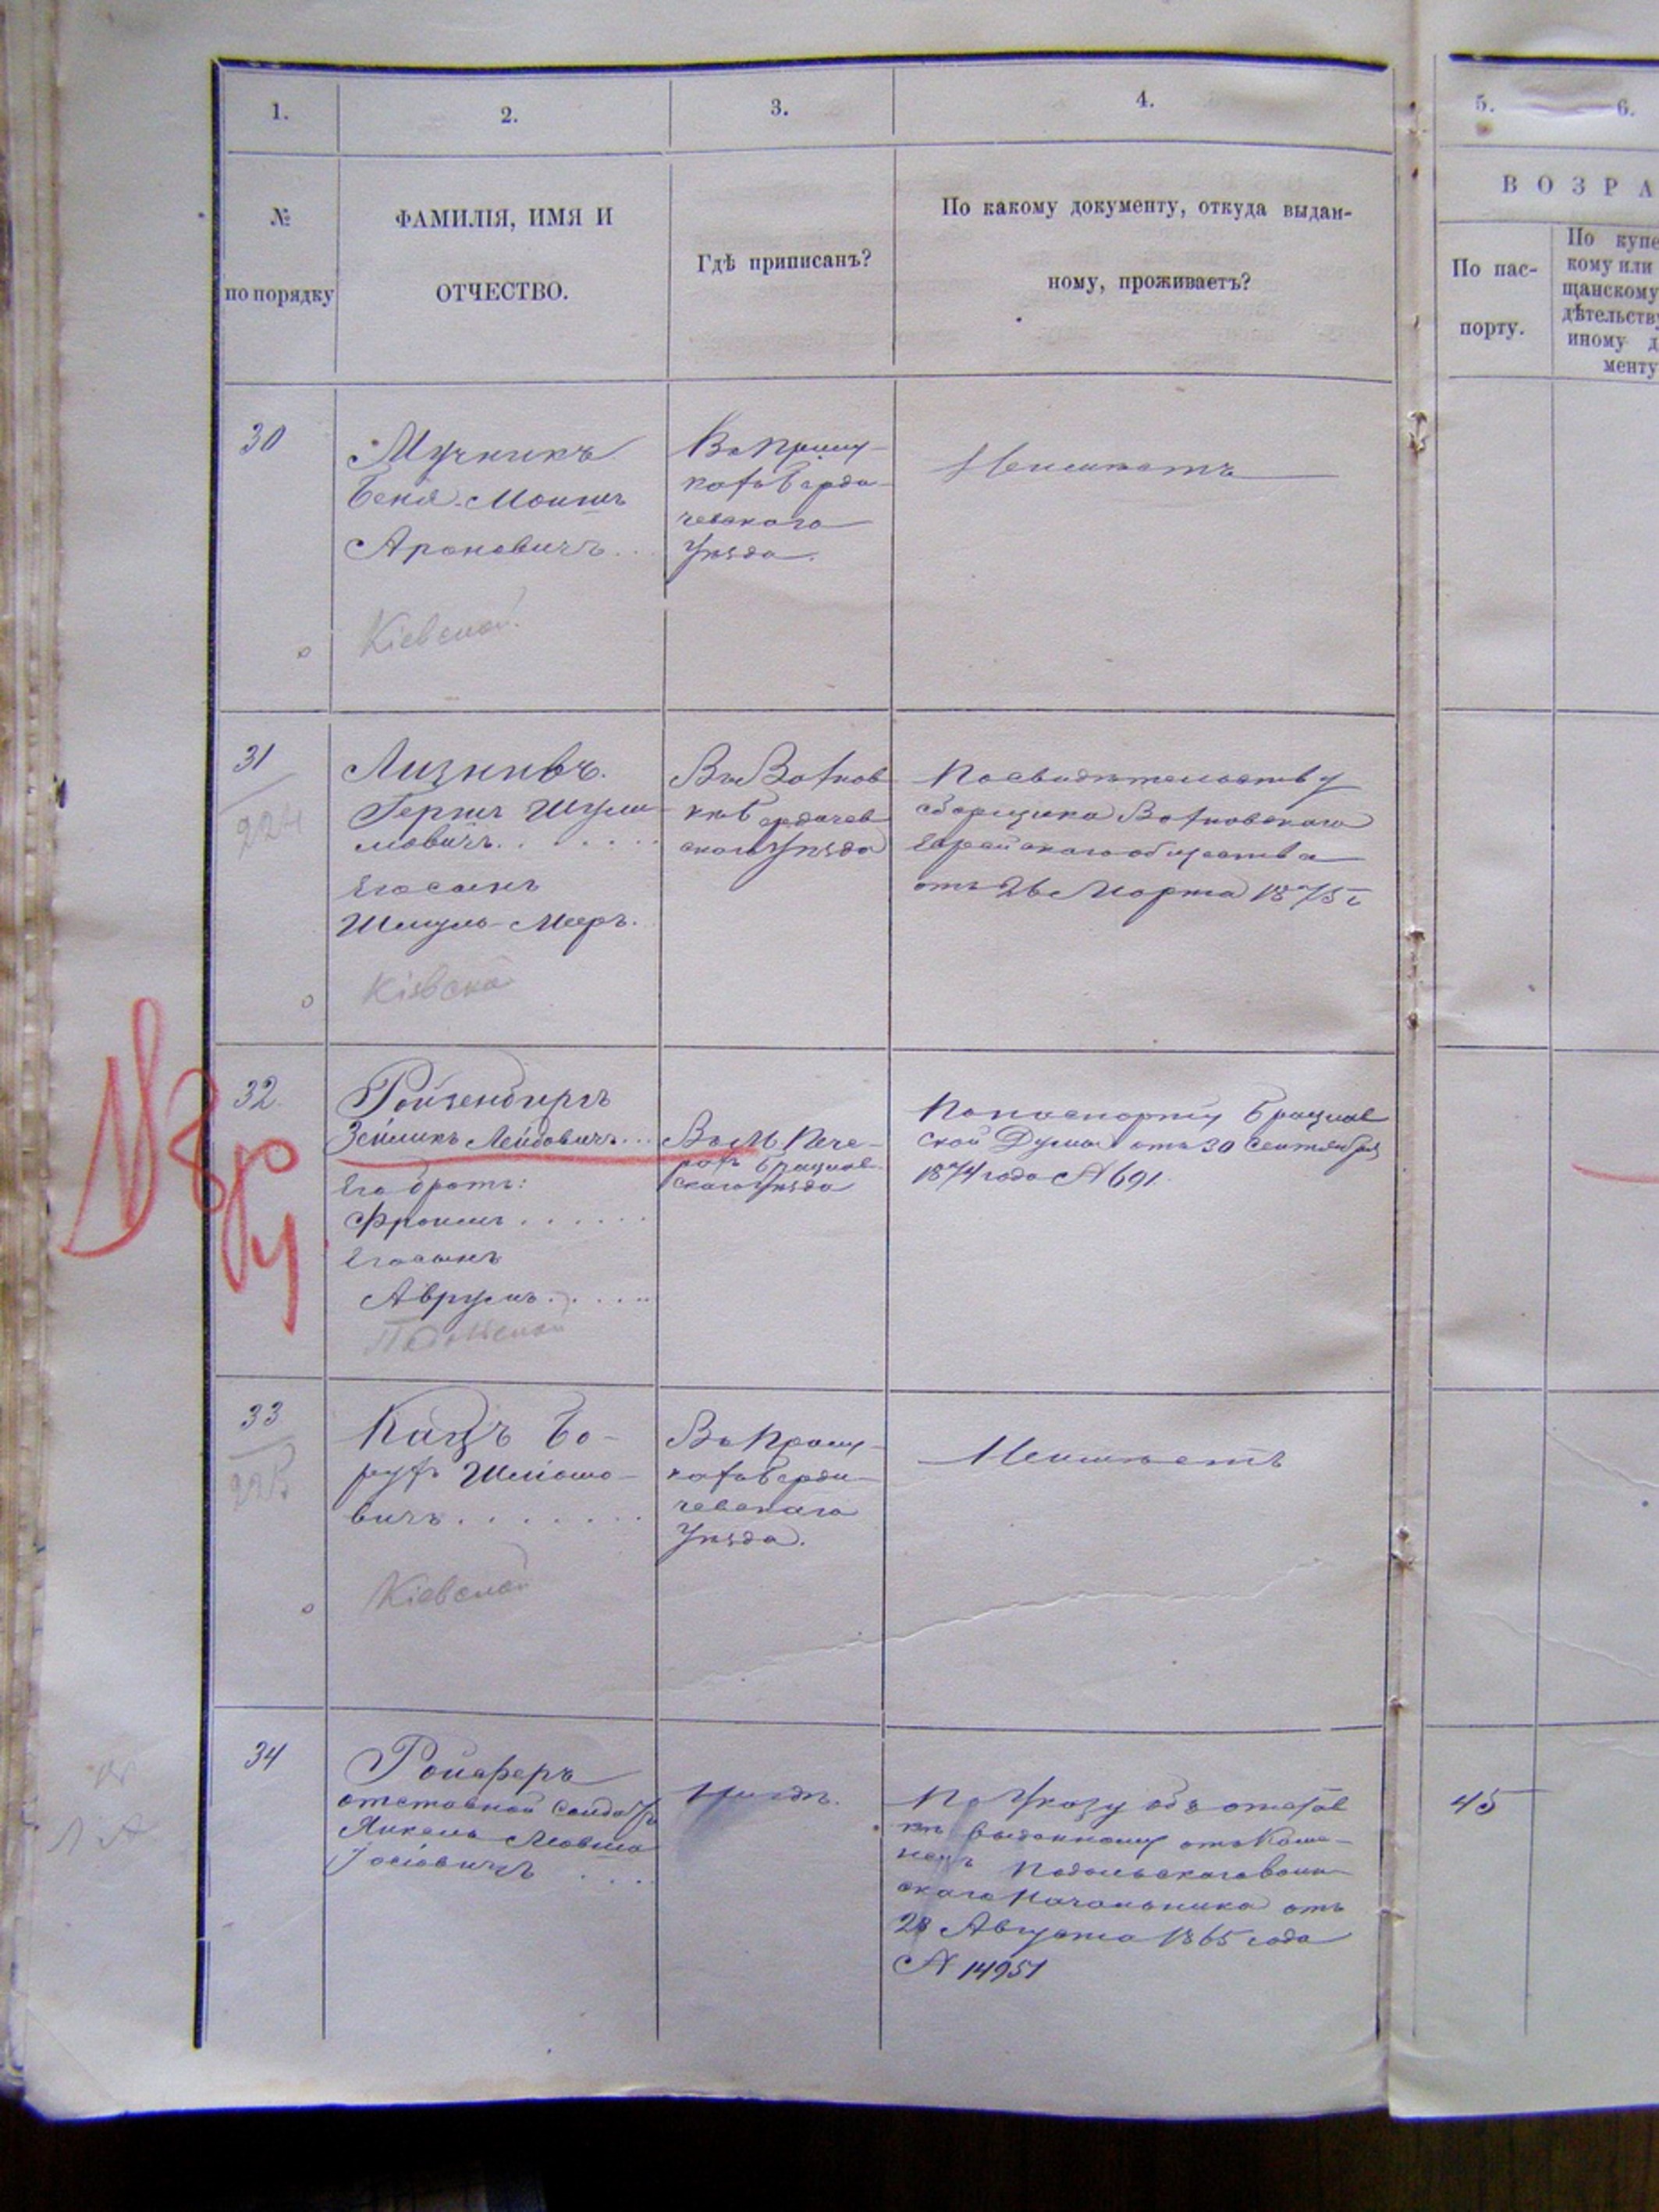 1.
2.
3.
4.
5.
6.
№
по порядку
ФАМИЛІЯ, ИМЯ И
ОТЧЕСТВО.
Гдѣ приписанъ?
По какому документу, откуда выдан-
ному, проживаетъ?
ВОЗРА
По пас-
порту.
По купе
кому или
щанскому
дѣтельству
иному д
менту
30
Мучникъ
Беня-Моишъ
Ароновичъ...
Кіевской
Берди-
чевскаго
Уѣзда.
Неимѣетъ
31
Гершъ Шмуле-
мовичъ......
Его сынъ
Шмуль-Меръ.
Кіевской
Бердичев
скаго Уѣзда
По свидѣтельству
сборщика
Еврейскаго общества
отъ 26 Марта 1875 г
32
Ройзенбергъ
Зейликъ Лейбовичъ...
Его братъ:
Фроимъ......
Его сынъ
Аврумъ.....
Подольской
Въ М. Пече-
рахъ Брацлав-
скаго Уѣзда
По паспорту Брацлав
ской Думы отъ 30 Сентября
1874 года № 691.
33
Кацъ Бо-
рухъ
вичъ.......
Кіевской
Берди-
чевскаго
Уѣзда.
Неимѣетъ
34
отставной Солдатъ
Янкель Мовша
Іосіовичъ....
По Указу объ отстав
кѣ выданному отъ Каме-
нецъ Подольскаго воин-
скаго Начальника отъ
28 Августа 1865 года
№ 14951
45